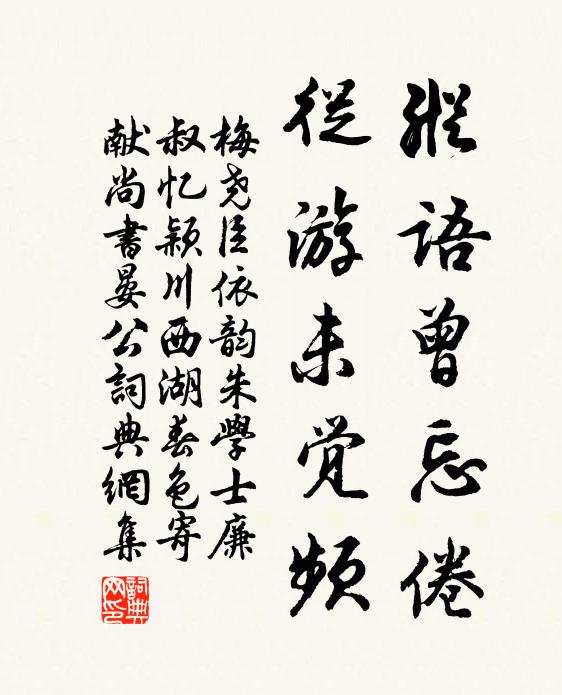 縱語曾忘倦
從游未覚頻
梅尧臣依韵朱學士廉
叔忆颖川西湖春色寄
献尚書晏公詞典網集
詞典
网印